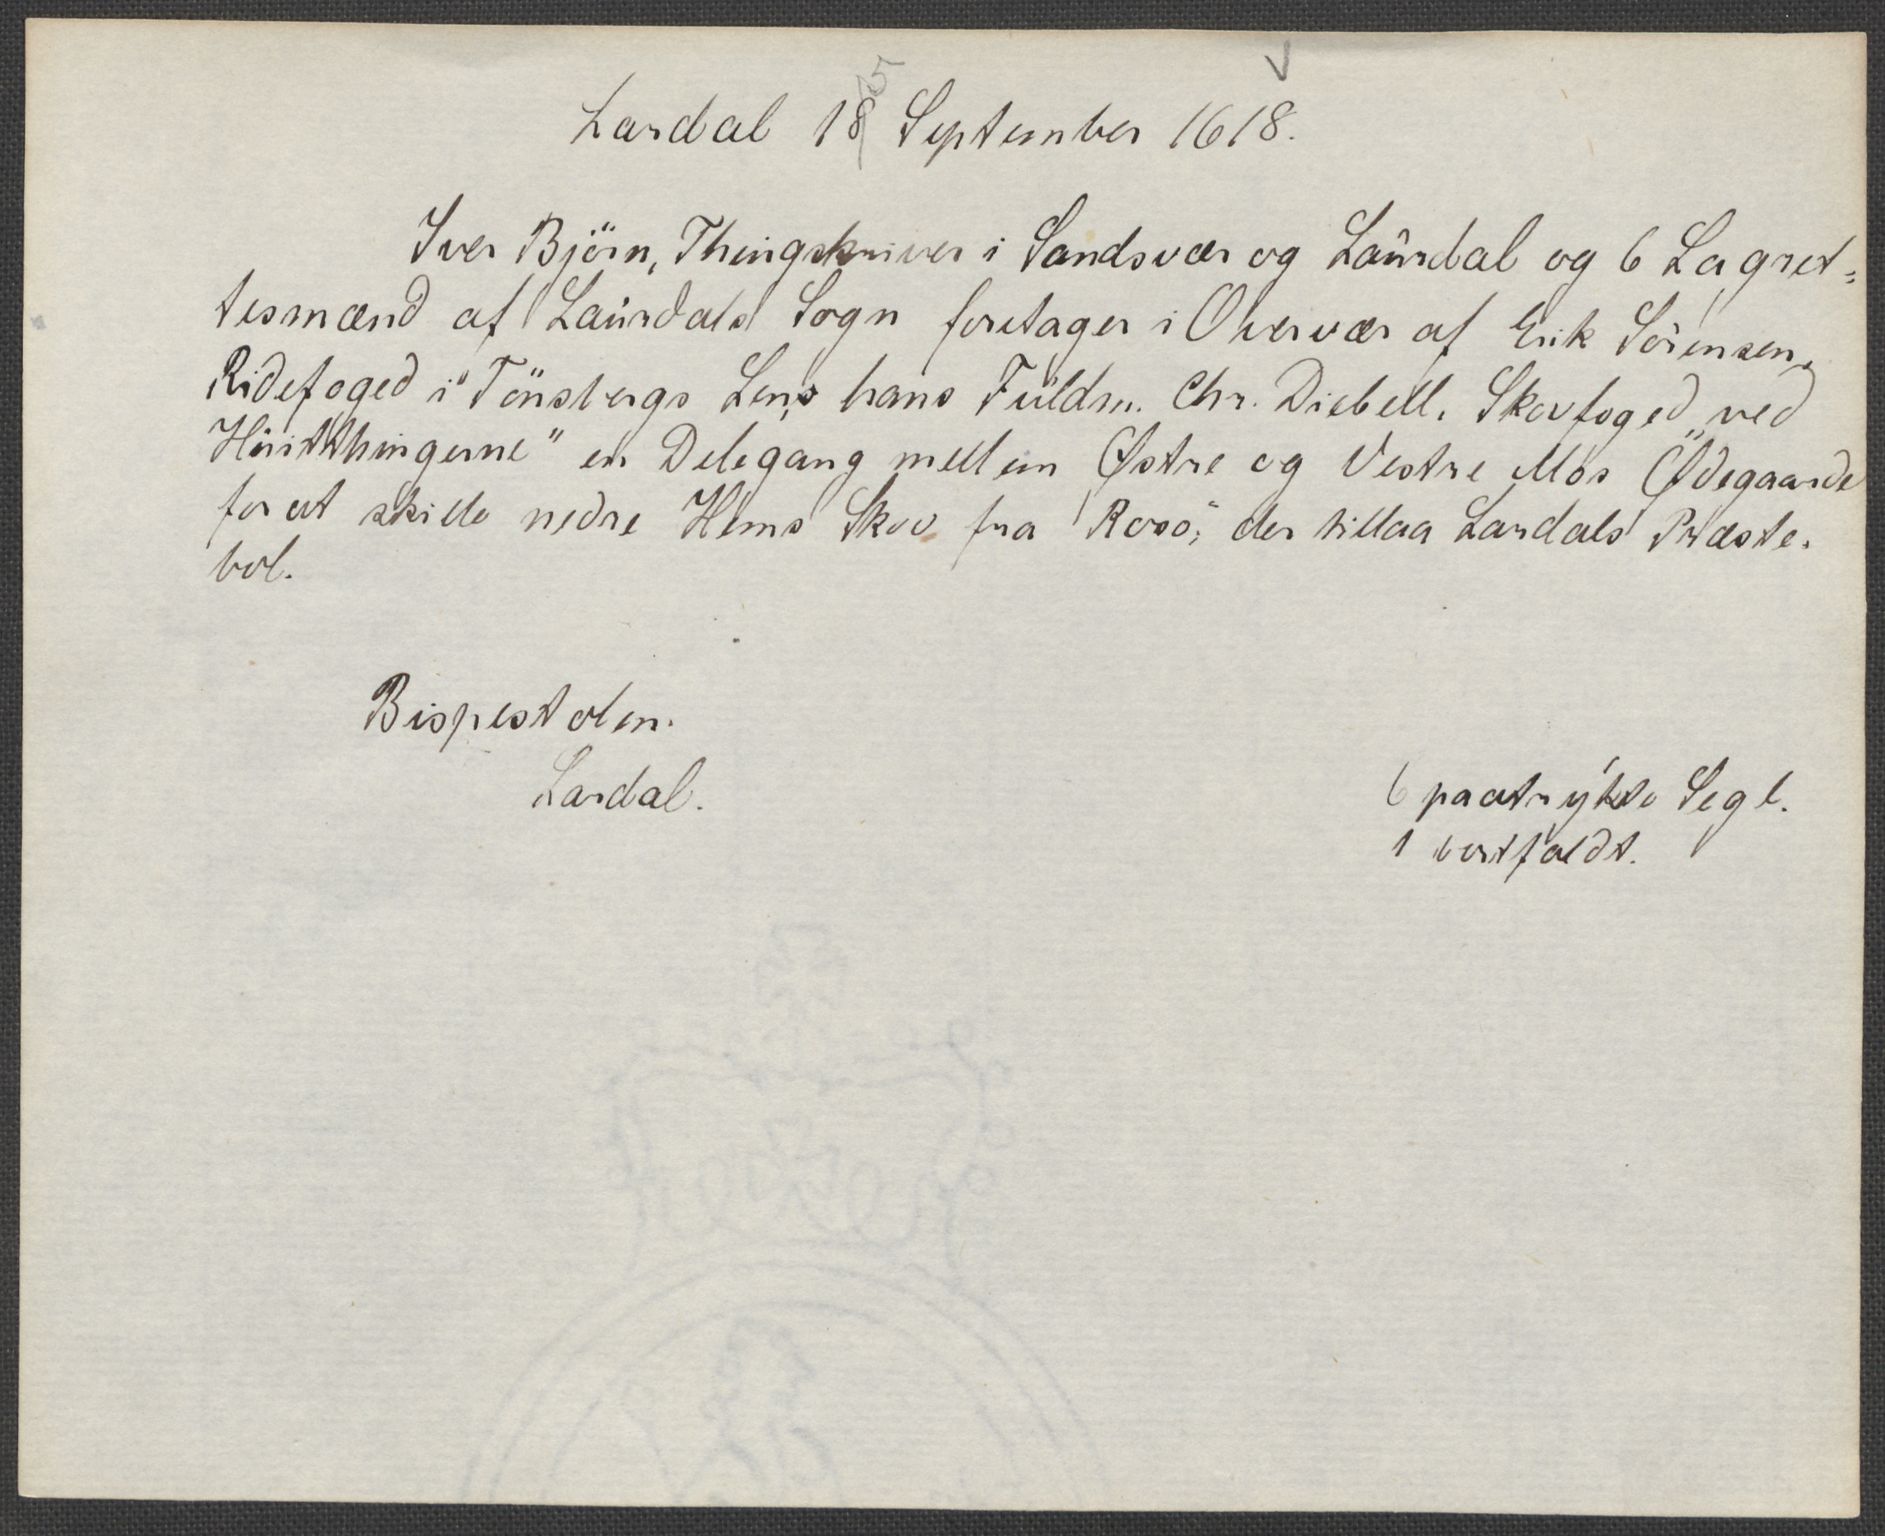 Lardal 18 September 1618.
5
Iver Björn, Thingskriver i Sandsvær og Laûrdal og 6 Lagret=
tesmænd af Laûrdals Sogn foretager i Overvær af Erik Sörensen,
Ridefoged i Tönsbergs Len, hans Fuldm. Chr. Diebell, Skovfoged ved
thingerne" en Delegang mellem Østre og Vestre Mos Ødegaarde
for at skille nedre Hems Skov fra Rosö, der tillaa Lardals Præste.
bol.
Bispestolen.
Lardal.
6 paatrykte Segl.
1 bortfaldt.